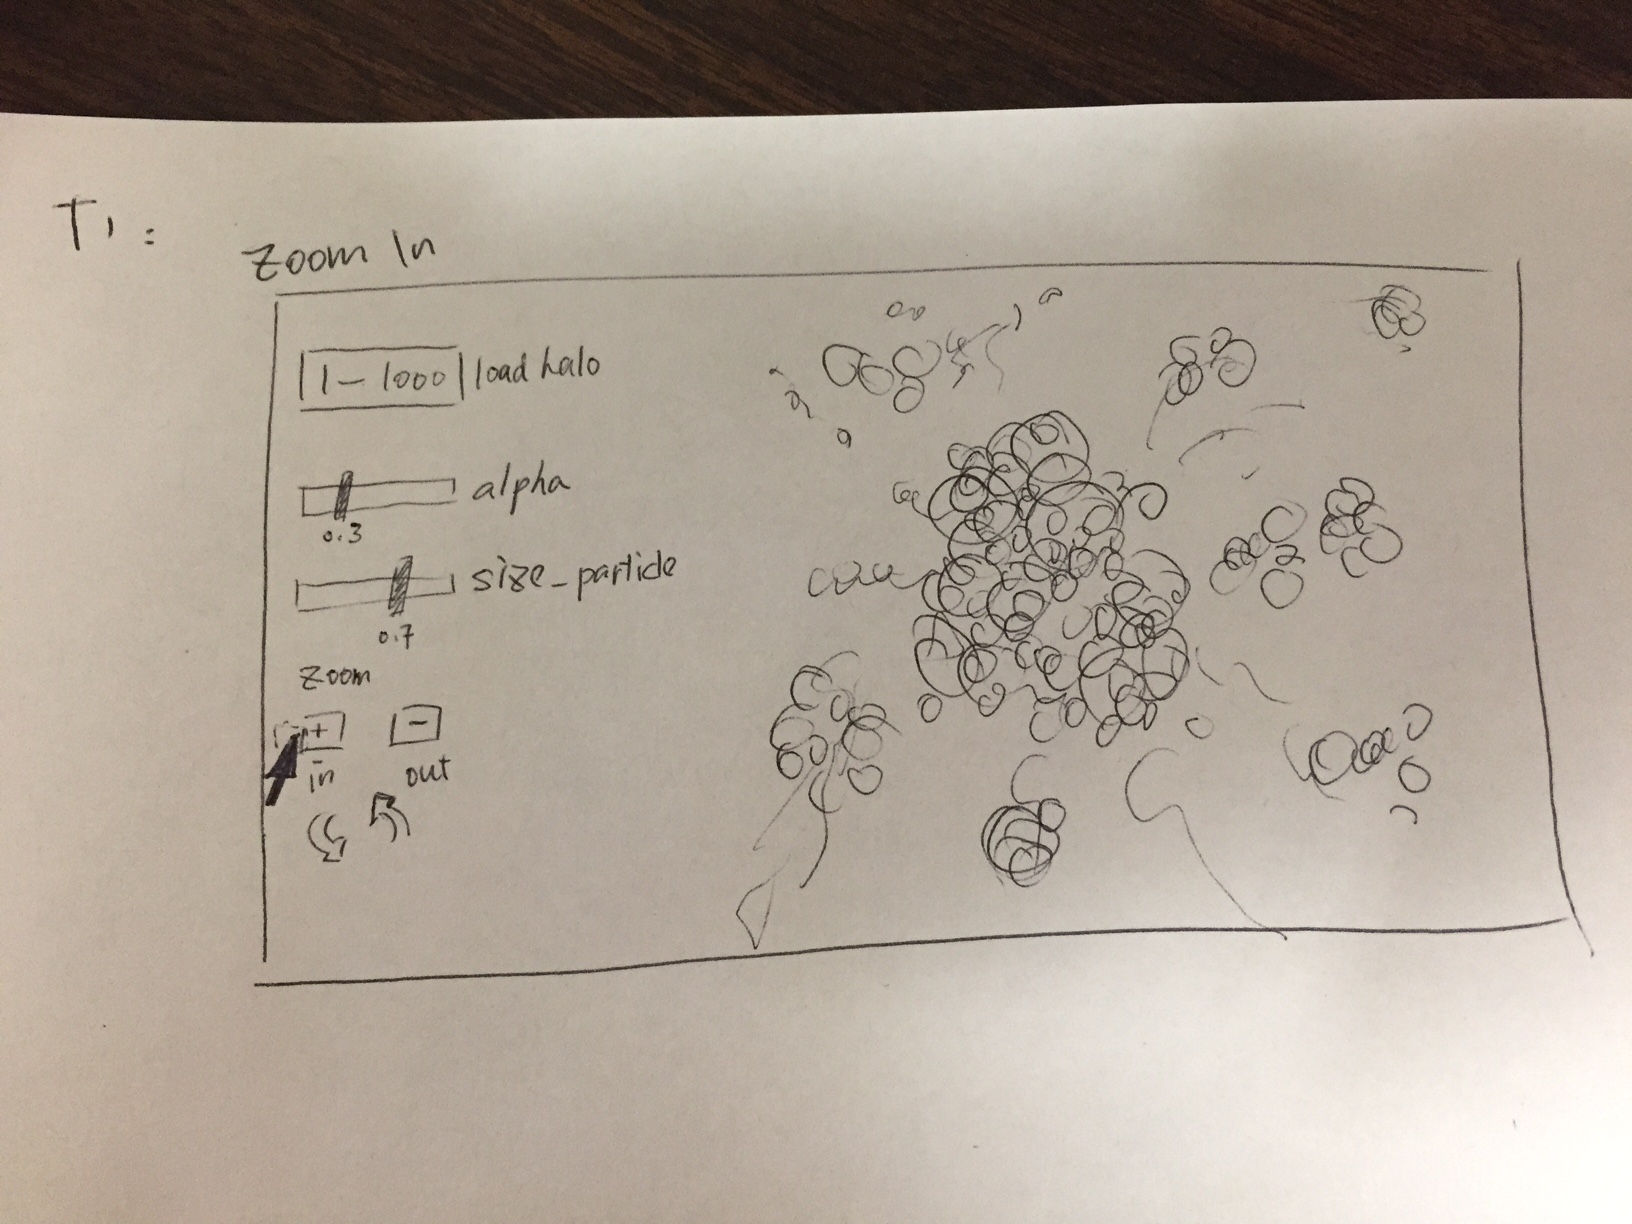 T1: Zoom In
1-1000 load halo
alpha
0.3
size-particle
0.7
zoom
+ -
in out
core